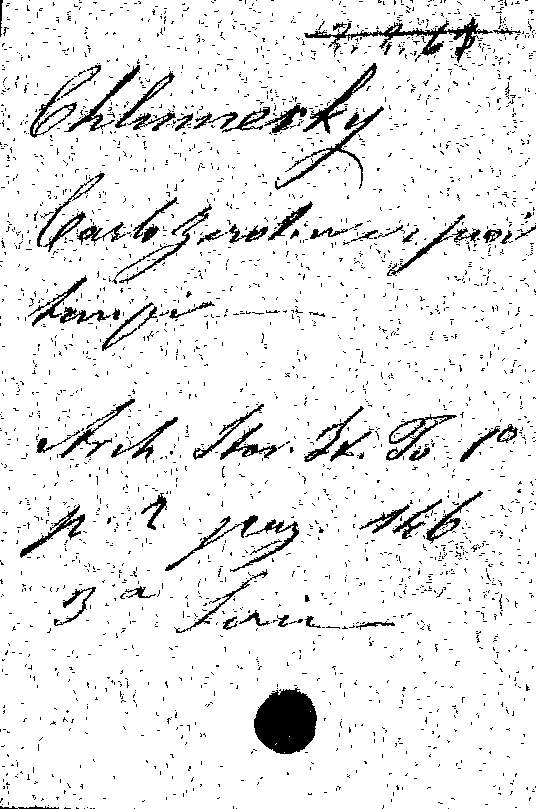 2.2.6
Chlumecky
Carlo Zerotin e i suoi
tempi
Arch. Stor. It. To 1º
p. 2 pag. 146
3ª Serie